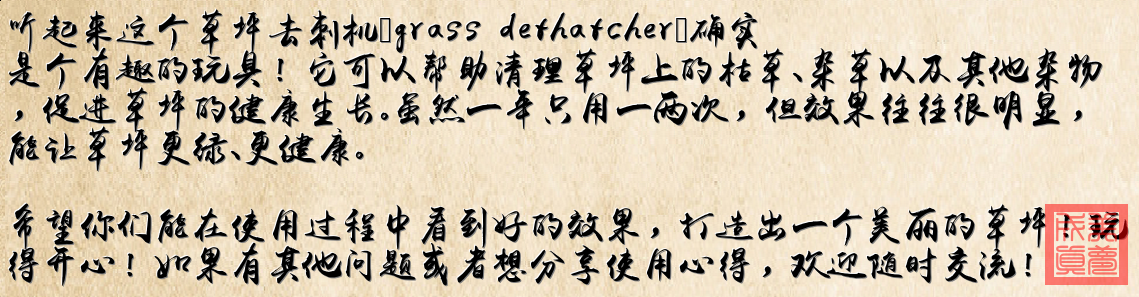 听起来这个草坪去刺机（grass dethatcher）确实
是个有趣的玩具！它可以帮助清理草坪上的枯草、杂草以及其他杂物
，促进草坪的健康生长。虽然一年只用一两次，但效果往往很明显，
能让草坪更绿、更健康。
希望你们能在使用过程中看到好的效果，打造出一个美丽的草坪！玩
得开心！如果有其他问题或者想分享使用心得，欢迎随时交流！